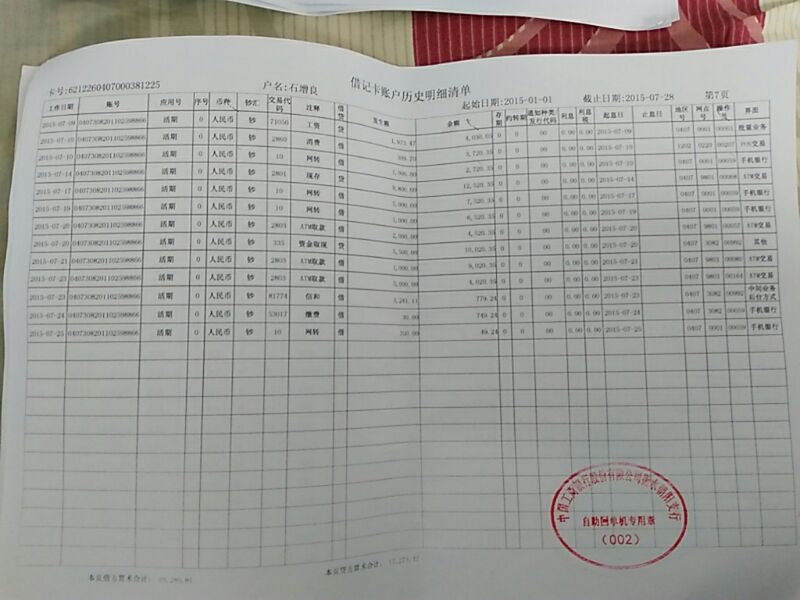 借记卡账户历史明细清单
卡号:6212260407000381225 户名:石增良 起始日期:2015-01-01 截止日期:2015-07-28 第7页
工作日期 账号 应用号 序号 币种 钞汇 交易代码 注释 借贷 发生额 余额 存期 约转期 通知种类发行代码 利息 利息税 起息日 止息日 地区号 网点号 操作员 界面
2015-07-09 0407308201102598866 活期 0 人民币 钞 71050 工资 贷 1,923.47 4,030.05 0 0 00 0.00 0.00 2015-07-09 0407 0001 批量业务
2015-07-10 0407308201102598866 活期 0 人民币 钞 2860 消费 借 3,720.35 0 0 00 0.00 0.00 2015-07-10 1202 0220 00207 POS交易
2015-07-10 0407308201102598866 活期 0 人民币 钞 10 网转 借 1,000.00 2,720.35 0 0 00 0.00 0.00 2015-07-10 0407 0001 00059 手机银行
2015-07-14 0407308201102598866 活期 0 人民币 钞 2801 现存 贷 9,800.00 12,520.35 0 0 00 0.00 0.00 2015-07-14 0407 9801 ATM交易
2015-07-17 0407308201102598866 活期 0 人民币 钞 10 网转 借 5,000.00 7,520.35 0 0 00 0.00 0.00 2015-07-17 0407 0001 00059 手机银行
2015-07-19 0407308201102598866 活期 0 人民币 钞 10 网转 借 1,000.00 6,520.35 0 0 00 0.00 0.00 2015-07-19 0407 0001 00059 手机银行
2015-07-20 0407308201102598866 活期 0 人民币 钞 2803 ATM取款 借 2,000.00 4,520.35 0 0 00 0.00 0.00 2015-07-20 0407 9801 ATM交易
2015-07-20 0407308201102598866 活期 0 人民币 钞 335 资金取现 贷 5,500.00 10,020.35 0 0 00 0.00 0.00 2015-07-20 0407 3082 00982 其他
2015-07-21 0407308201102598866 活期 0 人民币 钞 2803 ATM取款 借 1,000.00 9,020.35 0 0 00 0.00 0.00 2015-07-21 0407 9801 ATM交易
2015-07-23 0407308201102598866 活期 0 人民币 钞 2803 ATM取款 借 5,000.00 4,020.35 0 0 00 0.00 0.00 2015-07-23 0407 9801 00164 ATM交易
2015-07-23 0407308201102598866 活期 0 人民币 钞 81774 信和 借 3,241.11 779.24 0 0 00 0.00 0.00 2015-07-23 0407 3082 00992 中间业务后台方式
2015-07-24 0407308201102598866 活期 0 人民币 钞 53017 缴费 借 30.00 749.24 0 0 00 0.00 0.00 2015-07-24 0407 3082 00059 手机银行
2015-07-25 0407308201102598866 活期 0 人民币 钞 10 网转 借 700.00 49.24 0 0 00 0.00 0.00 2015-07-25 0407 0001 00059 手机银行
中国工商银行股份有限公司衡水朝阳支行
自助回单机专用章
(002)
本页借方算术合计:
本页贷方算术合计: